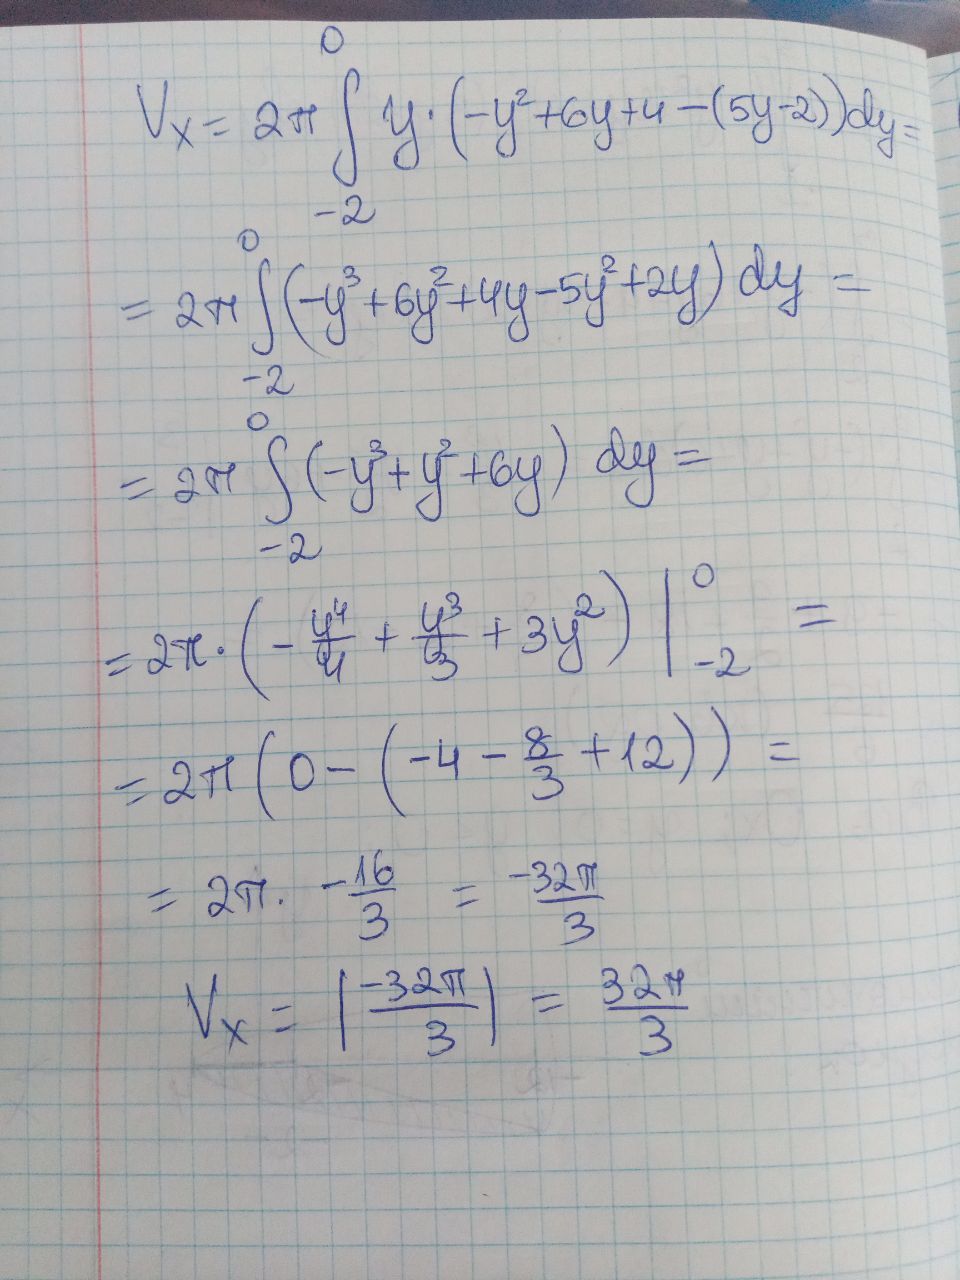 Vₓ = 2π ∫₋₂⁰ y·(-y²+6y+4-(5y-2))dy =
= 2π ∫₋₂⁰ (-y³+6y²+4y-5y²+2y) dy =
= 2π ∫₋₂⁰ (-y³+y²+6y) dy =
= 2π·(-y⁴/4 + y³/3 + 3y²) |₋₂⁰ =
= 2π(0-(-4-8/3+12)) =
= 2π· -16/3 = -32π/3
Vₓ = |-32π/3| = 32π/3